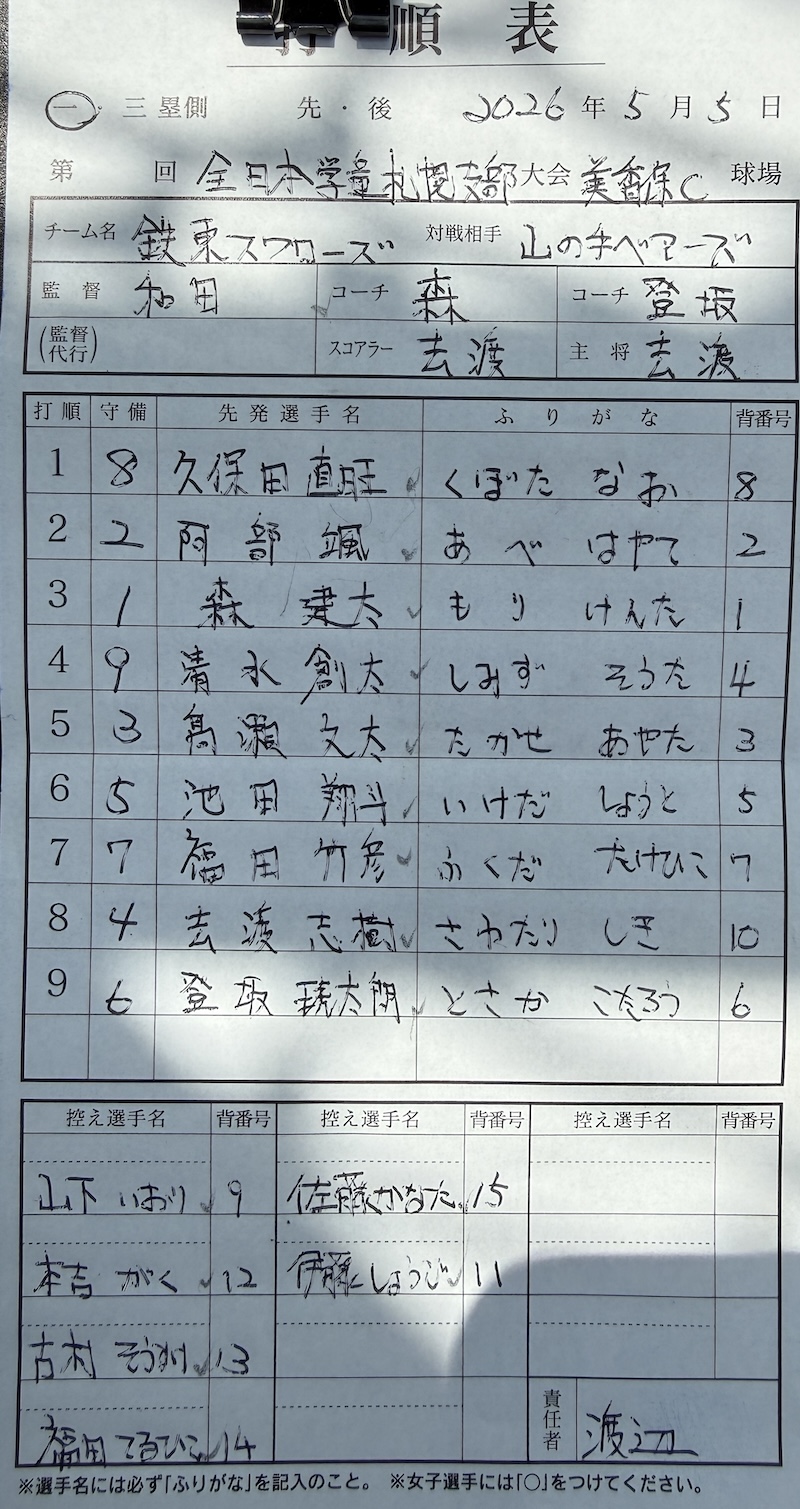 打順表
一 三塁側 先・後 2026年5月5日
第 回 全日本学童札幌支部大会 美香保C 球場
チーム名 鉄東スワローズ 対戦相手 山の手ベアーズ
監督 和田 コーチ 森 コーチ 登坂
(監督代行) スコアラー 去渡 主将 去渡
打順 守備 先発選手名 ふりがな 背番号
1 8 久保田直旺 くぼた なお 8
2 2 阿部 颯 あべ はやて 2
3 1 森 建太 もり けんた 1
4 9 清水 創太 しみず そうた 4
5 3 髙瀬 文太 たかせ あやた 3
6 5 池田 翔斗 いけだ しょうと 5
7 7 福田 竹彦 ふくだ たけひこ 7
8 4 去渡 志樹 さわたり しき 10
9 6 登坂 琥太朗 とさか こたろう 6
控え選手名 背番号 控え選手名 背番号 控え選手名 背番号
山下 いおり 9 佐藤かなた 15
本吉 がく 12 伊藤しょうじ 11
古村 13
福田 てるひこ 14
責任者 渡辺
※選手名には必ず「ふりがな」を記入のこと。 ※女子選手には「○」をつけてください。